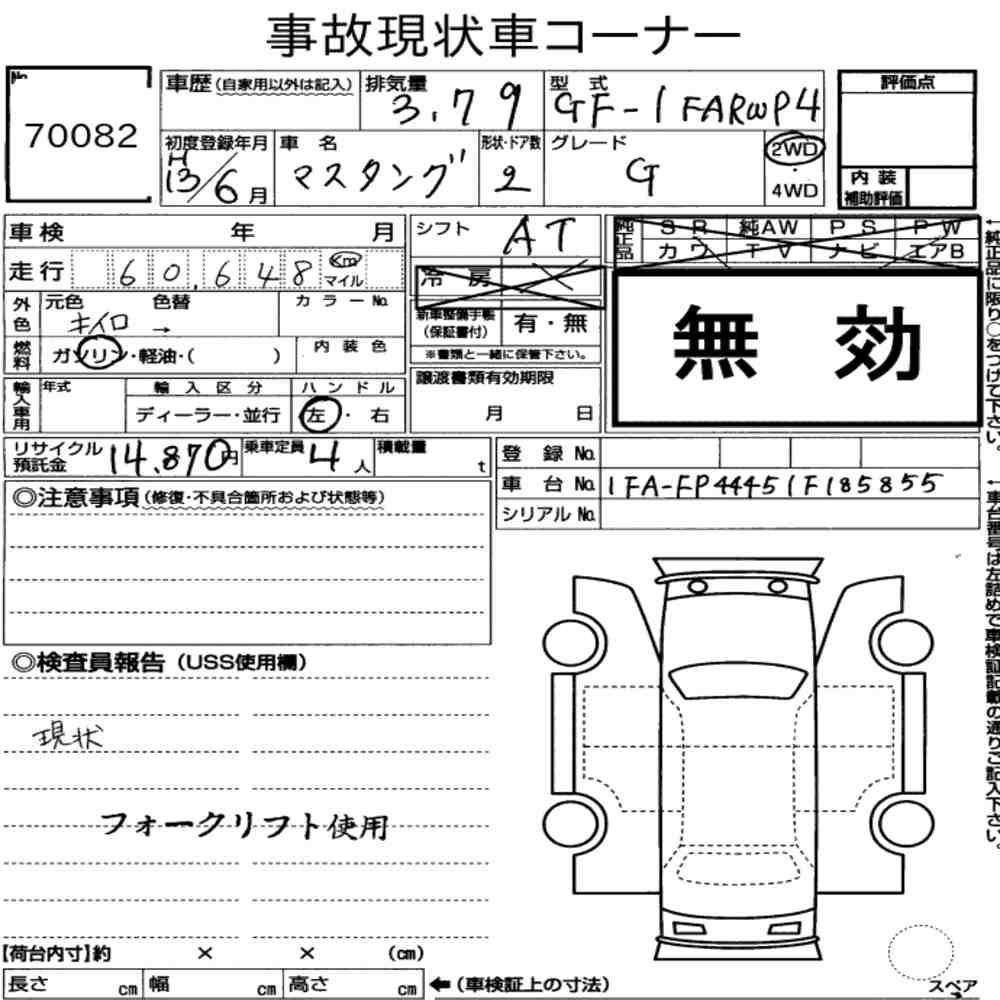 事故現状車コーナー
No. 70082
車歴 (自家用以外は記入) 排気量 3.79 型式 GF-1FARWP4 評価点
初度登録年月 H13/6月 車名 マスタング 形状・ドア数 2 グレード G 2WD・4WD
内装補助評価
車検 年 月 シフト AT 純正品 SR 純AW PS PW
カワ TV ナビ エアB
走行 60,648 Km マイル 冷房
外色 元色 キイロ 色替 → カラーNo.
新車整備手帳(保証書付) 有・無
※書類と一緒に保管下さい。
無効
燃料 ガソリン・軽油・( ) 内装色
輸入車用 年式 輸入区分 ディーラー・並行 ハンドル 左・右
譲渡書類有効期限 月 日
リサイクル預託金 14,870円 乗車定員 4人 積載量 t
登録No.
車台No. 1FA-FP44451F185855
シリアルNo.
◎注意事項 (修復・不具合箇所および状態等)
◎検査員報告 (USS使用欄)
現状
フォークリフト使用
【荷台内寸】約 × × (cm)
長さ cm 幅 cm 高さ cm ←(車検証上の寸法)
スペア
←純正品に限り○をつけて下さい。
←車台番号は左詰めで車検証記載の通りご記入下さい。